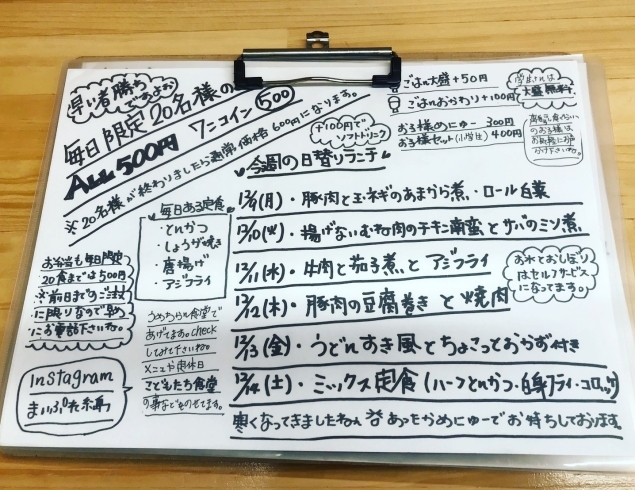 早い者勝ち
ですよお
毎日限定20名様の
ALL500円 ワンコイン 500
※20名様が終わりましたら通常価格600円になります。
+100円で
ソフトドリンク
ごはん大盛+50円
ごはんおかわり+100円
学生さんは
大盛無料
お子様めにゅー 300円
お子様セット(小学生) 400円
のお子様は
お気軽にお申
今週の日替ランチ
12/9(月)・豚肉と玉ネギのあまから煮・ロール白菜
12/10(火)・揚げないむね肉のチキン南蛮とサバのミソ煮
12/11(水)・牛肉と茄子煮とアジフライ
12/12(木)・豚肉の豆腐巻きと焼肉
12/13(金)・うどんすき風とちょこっとおかず付き
12/14(土)・ミックス定食(ハーフとんかつ・白身フライ・コロッケ)
寒くなってきましたねん あったかめにゅーでお待ちしております。
お水とおしぼり
はセルフサービス
になってます。
毎日ある定食
・とんかつ
・しょうが焼き
・唐揚げ
・アジフライ
お弁当も毎日限定
20食までは500円
※前日までのご注文
に限りなので早め
にお電話下さいね。
うめちゃん食堂で
あげてます。check
してみて下さいね。
メニュや定休日
こどもたち食堂
の事などをのせてます。
Instagram
まいぷれ糸島